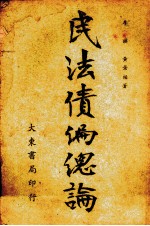 民法債編總論
大東書局印行